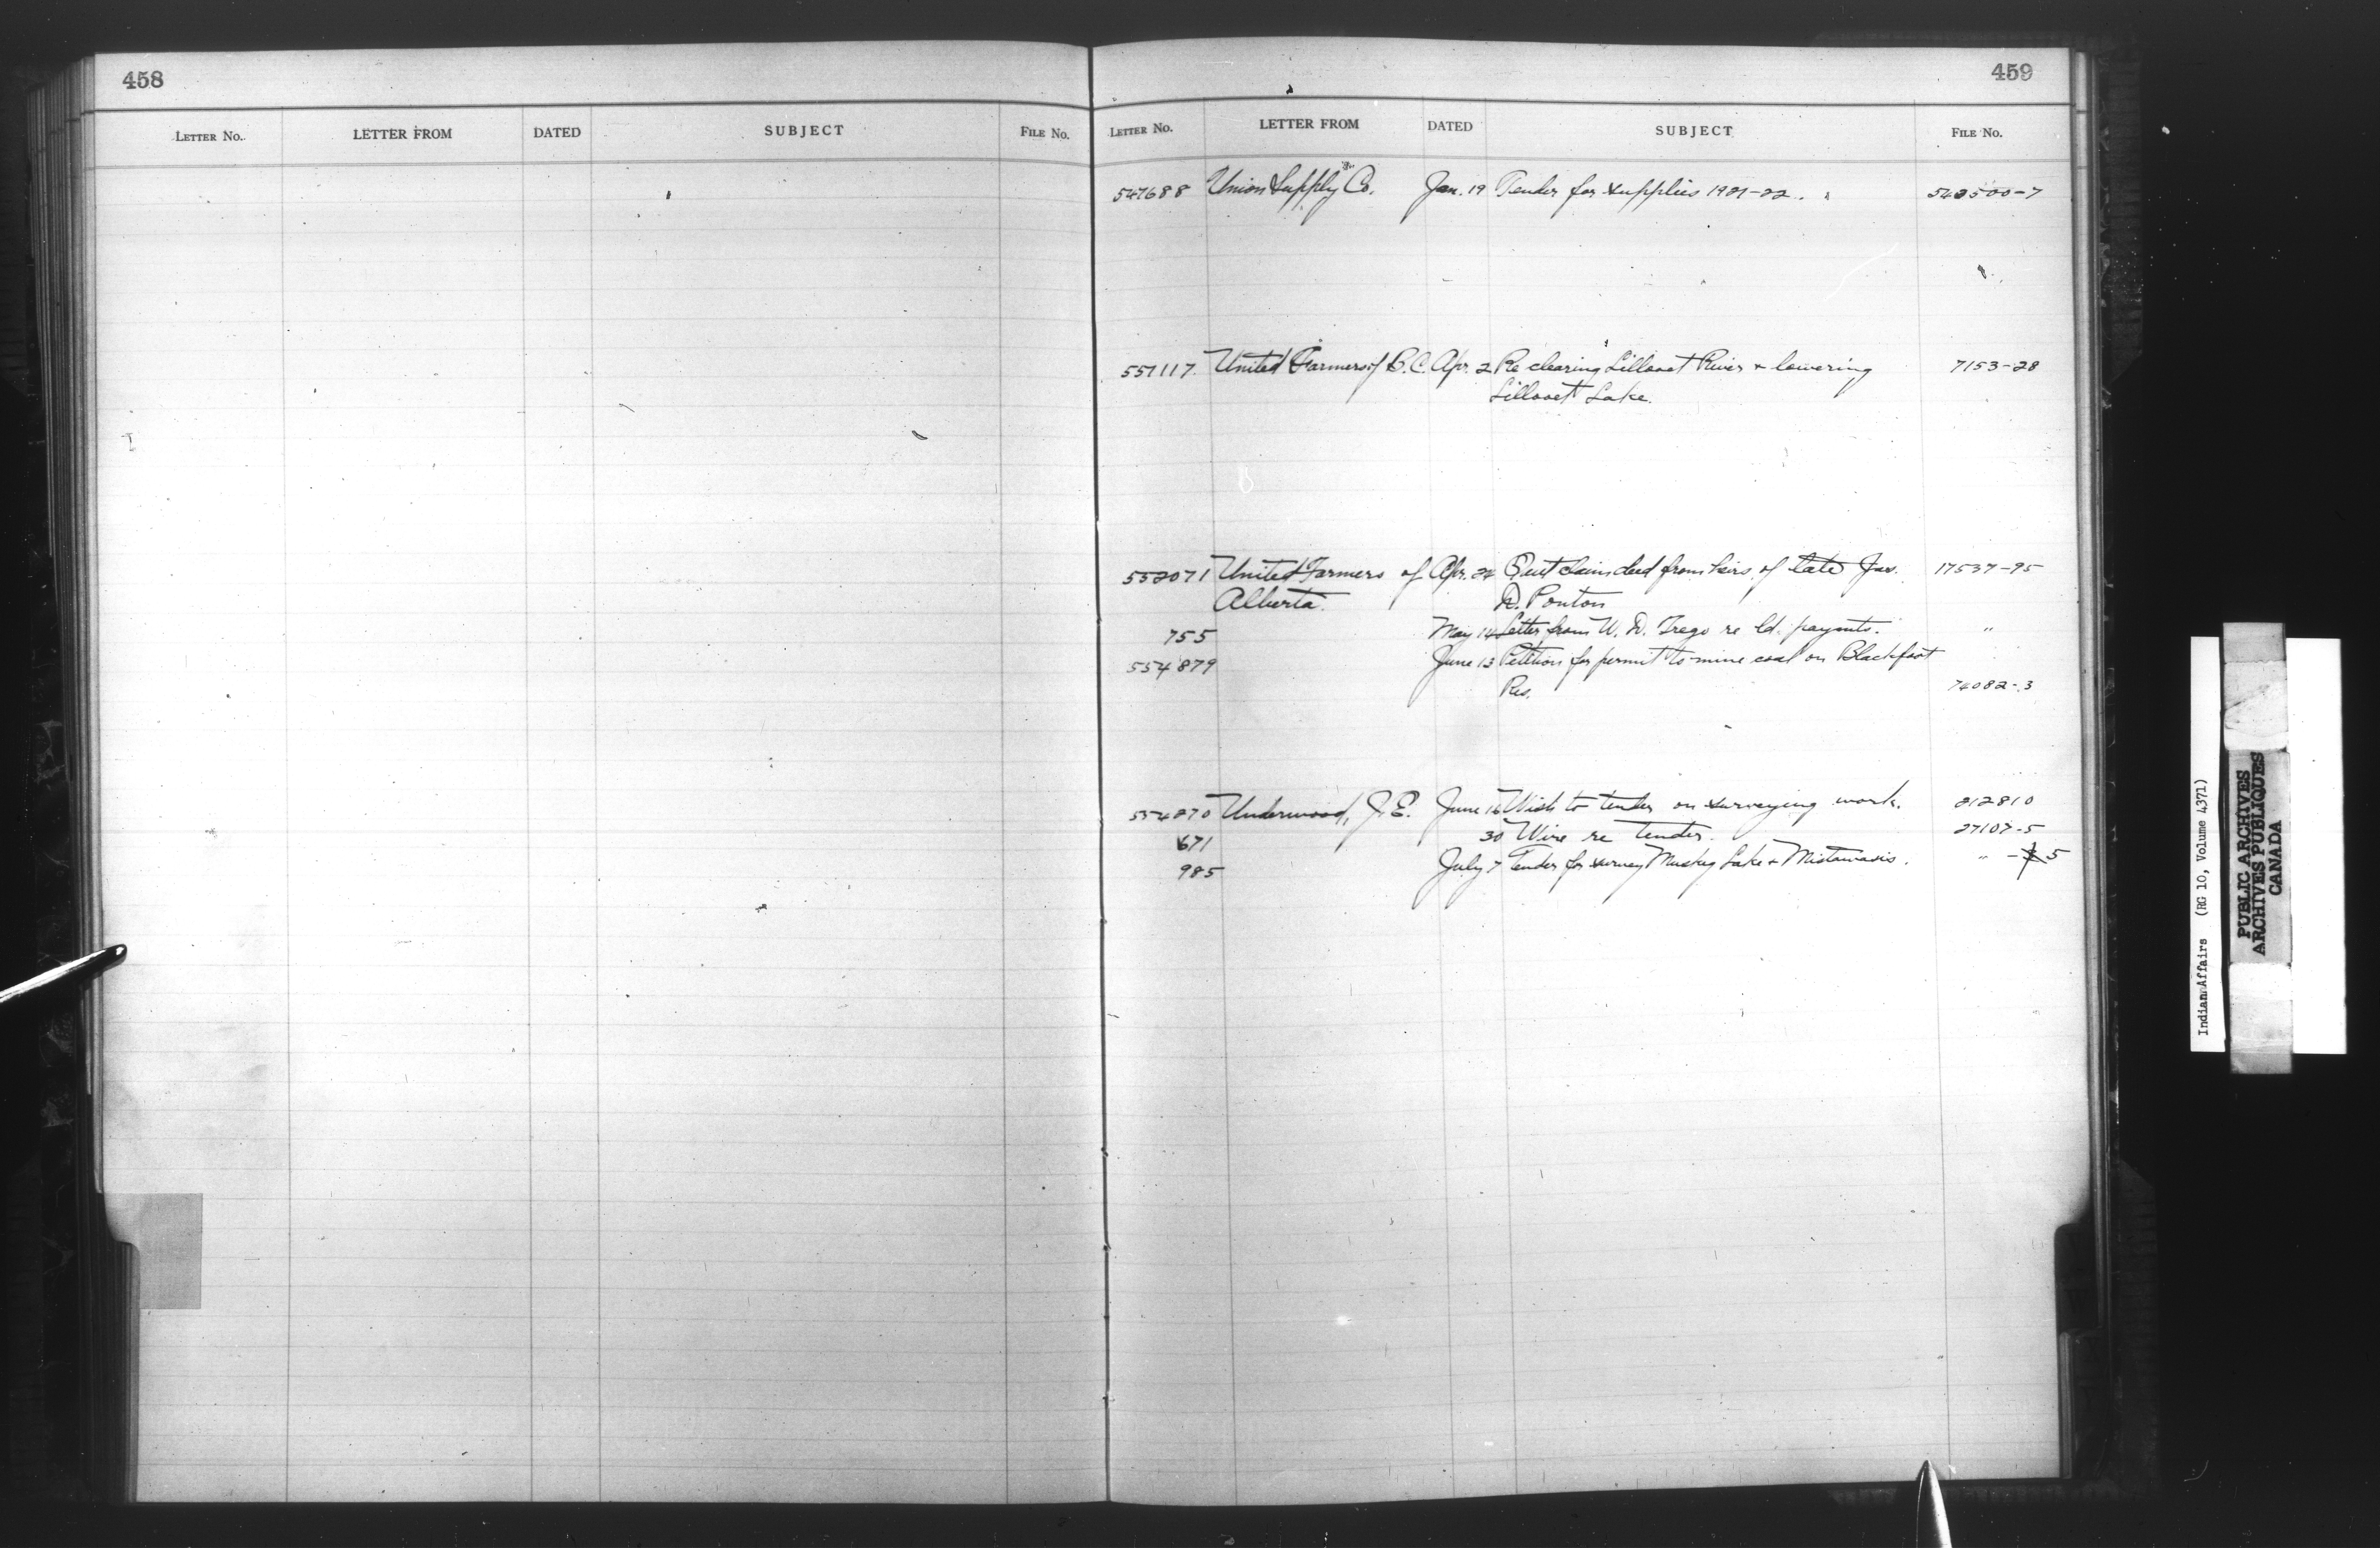 458
LETTER No. LETTER FROM DATED SUBJECT FILE No.
459
LETTER No. LETTER FROM DATED SUBJECT FILE No.
547688 Union Supply Co. Jan. 19 Tender for supplies 1921-22. 543500-7
551117 United Farmers of B.C. Apr. 2 Re clearing Lillooet River & lowering 7153-28
Lillooet Lake.
552071 United Farmers of Apr. 24 Quit claim deed from heirs of late Jas. 17537-95
Alberta. D. Ponton
755 May 14 Letter from W. D. Trego re ld. paymts. "
554879 June 13 Petition for permit to mine coal on Blackfoot
Res. 74082-3
554270 Underwood, J.E. June 16 Wish to tender on surveying work. 212810
671 30 Wire re tender. 27107-5
985 July 7 Tender for survey Muskeg Lake & Mistawasis. " - 5
Indian Affairs (RG 10, Volume 4371)
PUBLIC ARCHIVES
ARCHIVES PUBLIQUES
CANADA